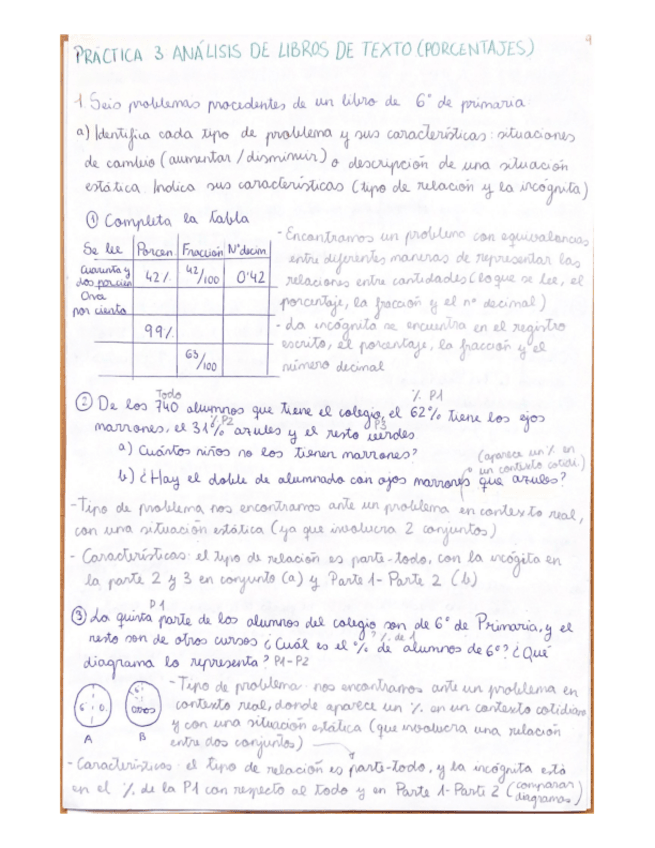 PRÁCTICA 3 ANÁLISIS DE LIBROS DE TEXTO (PORCENTAJES)
1. Seis problemas procedentes de un libro de 6º de primaria
a) Identifica cada tipo de problema y sus características: situaciones
de cambio (aumentar / disminuir) o descripción de una situación
estática. Indica sus características (tipo de relación y la incógnita)
① Completa la tabla
Se lee Porcen. Fracción Nº decim
Cuarenta y dos por cien 42% 42/100 0'42
Once por ciento
99%
63/100
- Encontramos un problema con equivalencias
entre diferentes maneras de representar las
relaciones entre cantidades (lo que se lee, el
porcentaje, la fracción y el nº decimal)
- La incógnita se encuentra en el registro
escrito, el porcentaje, la fracción y el
número decimal
Todo % P1
② De los 740 alumnos que tiene el colegio, el 62% tiene los ojos
% P2 P3
marrones, el 31% azules y el resto verdes
a) ¿Cuántos niños no los tienen marrones?
(aparece un % en
un contexto cotidi.)
b) ¿Hay el doble de alumnado con ojos marrones que azules?
- Tipo de problema nos encontramos ante un problema en contexto real,
con una situación estática (ya que involucra 2 conjuntos)
- Características: el tipo de relación es parte-todo, con la incógita en
la parte 2 y 3 en conjunto (a) y Parte 1- Parte 2 (b)
P1
③ La quinta parte de los alumnos del colegio son de 6º de Primaria, y el
? % de 1
resto son de otros cursos ¿Cuál es el % de alumnos de 6º? ¿Qué
diagrama lo representa? P1-P2
6 O.
6 OTROS
A B
- Tipo de problema: nos encontramos ante un problema en
contexto real, donde aparece un % en un contexto cotidiano
y con una situación estática (que involucra una relación
entre dos conjuntos)
- Características: el tipo de relación es parte-todo, y la incógnita está
en el % de la P1 con respecto al todo y en Parte 1- Parte 2 (comparar
diagramas)